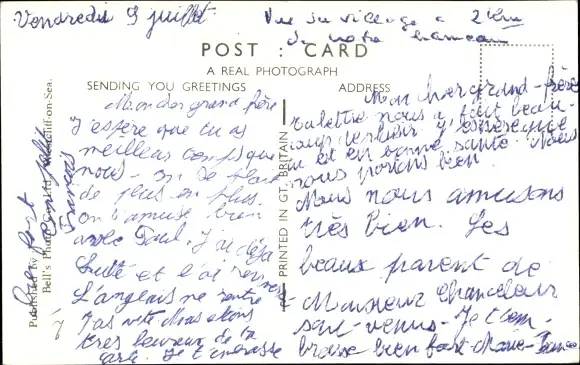 Vendredi 9 juillet
Vue du village a 2 km
de notre hameau
POST : CARD
A REAL PHOTOGRAPH
SENDING YOU GREETINGS
ADDRESS
Mon cher grand frère
J'espère que tu as
meilleur temps que
nous - on se plait
de plus en plus.
on s'amuse bien
avec Paul. J'ai déja
lutté et l'ai
L'anglais ne rentre
pas vite Nous étions
très heureux de ta
carte. Je t'embrasse
bien fort
ton petit
François
Mon cher grand-frère
Ta lettre nous a fait beau-
coup plaisir J'espère que
tu est en bonne santé. Nous
nous portons bien.
Nous nous amusons
très bien. Les
beaux parent de
Monsieur Chancelour
sont venus. Je t'em-
brasse bien fort Marie-France
PRINTED IN GT. BRITAIN
Published by
Bell's Photo
cliff-on-Sea.